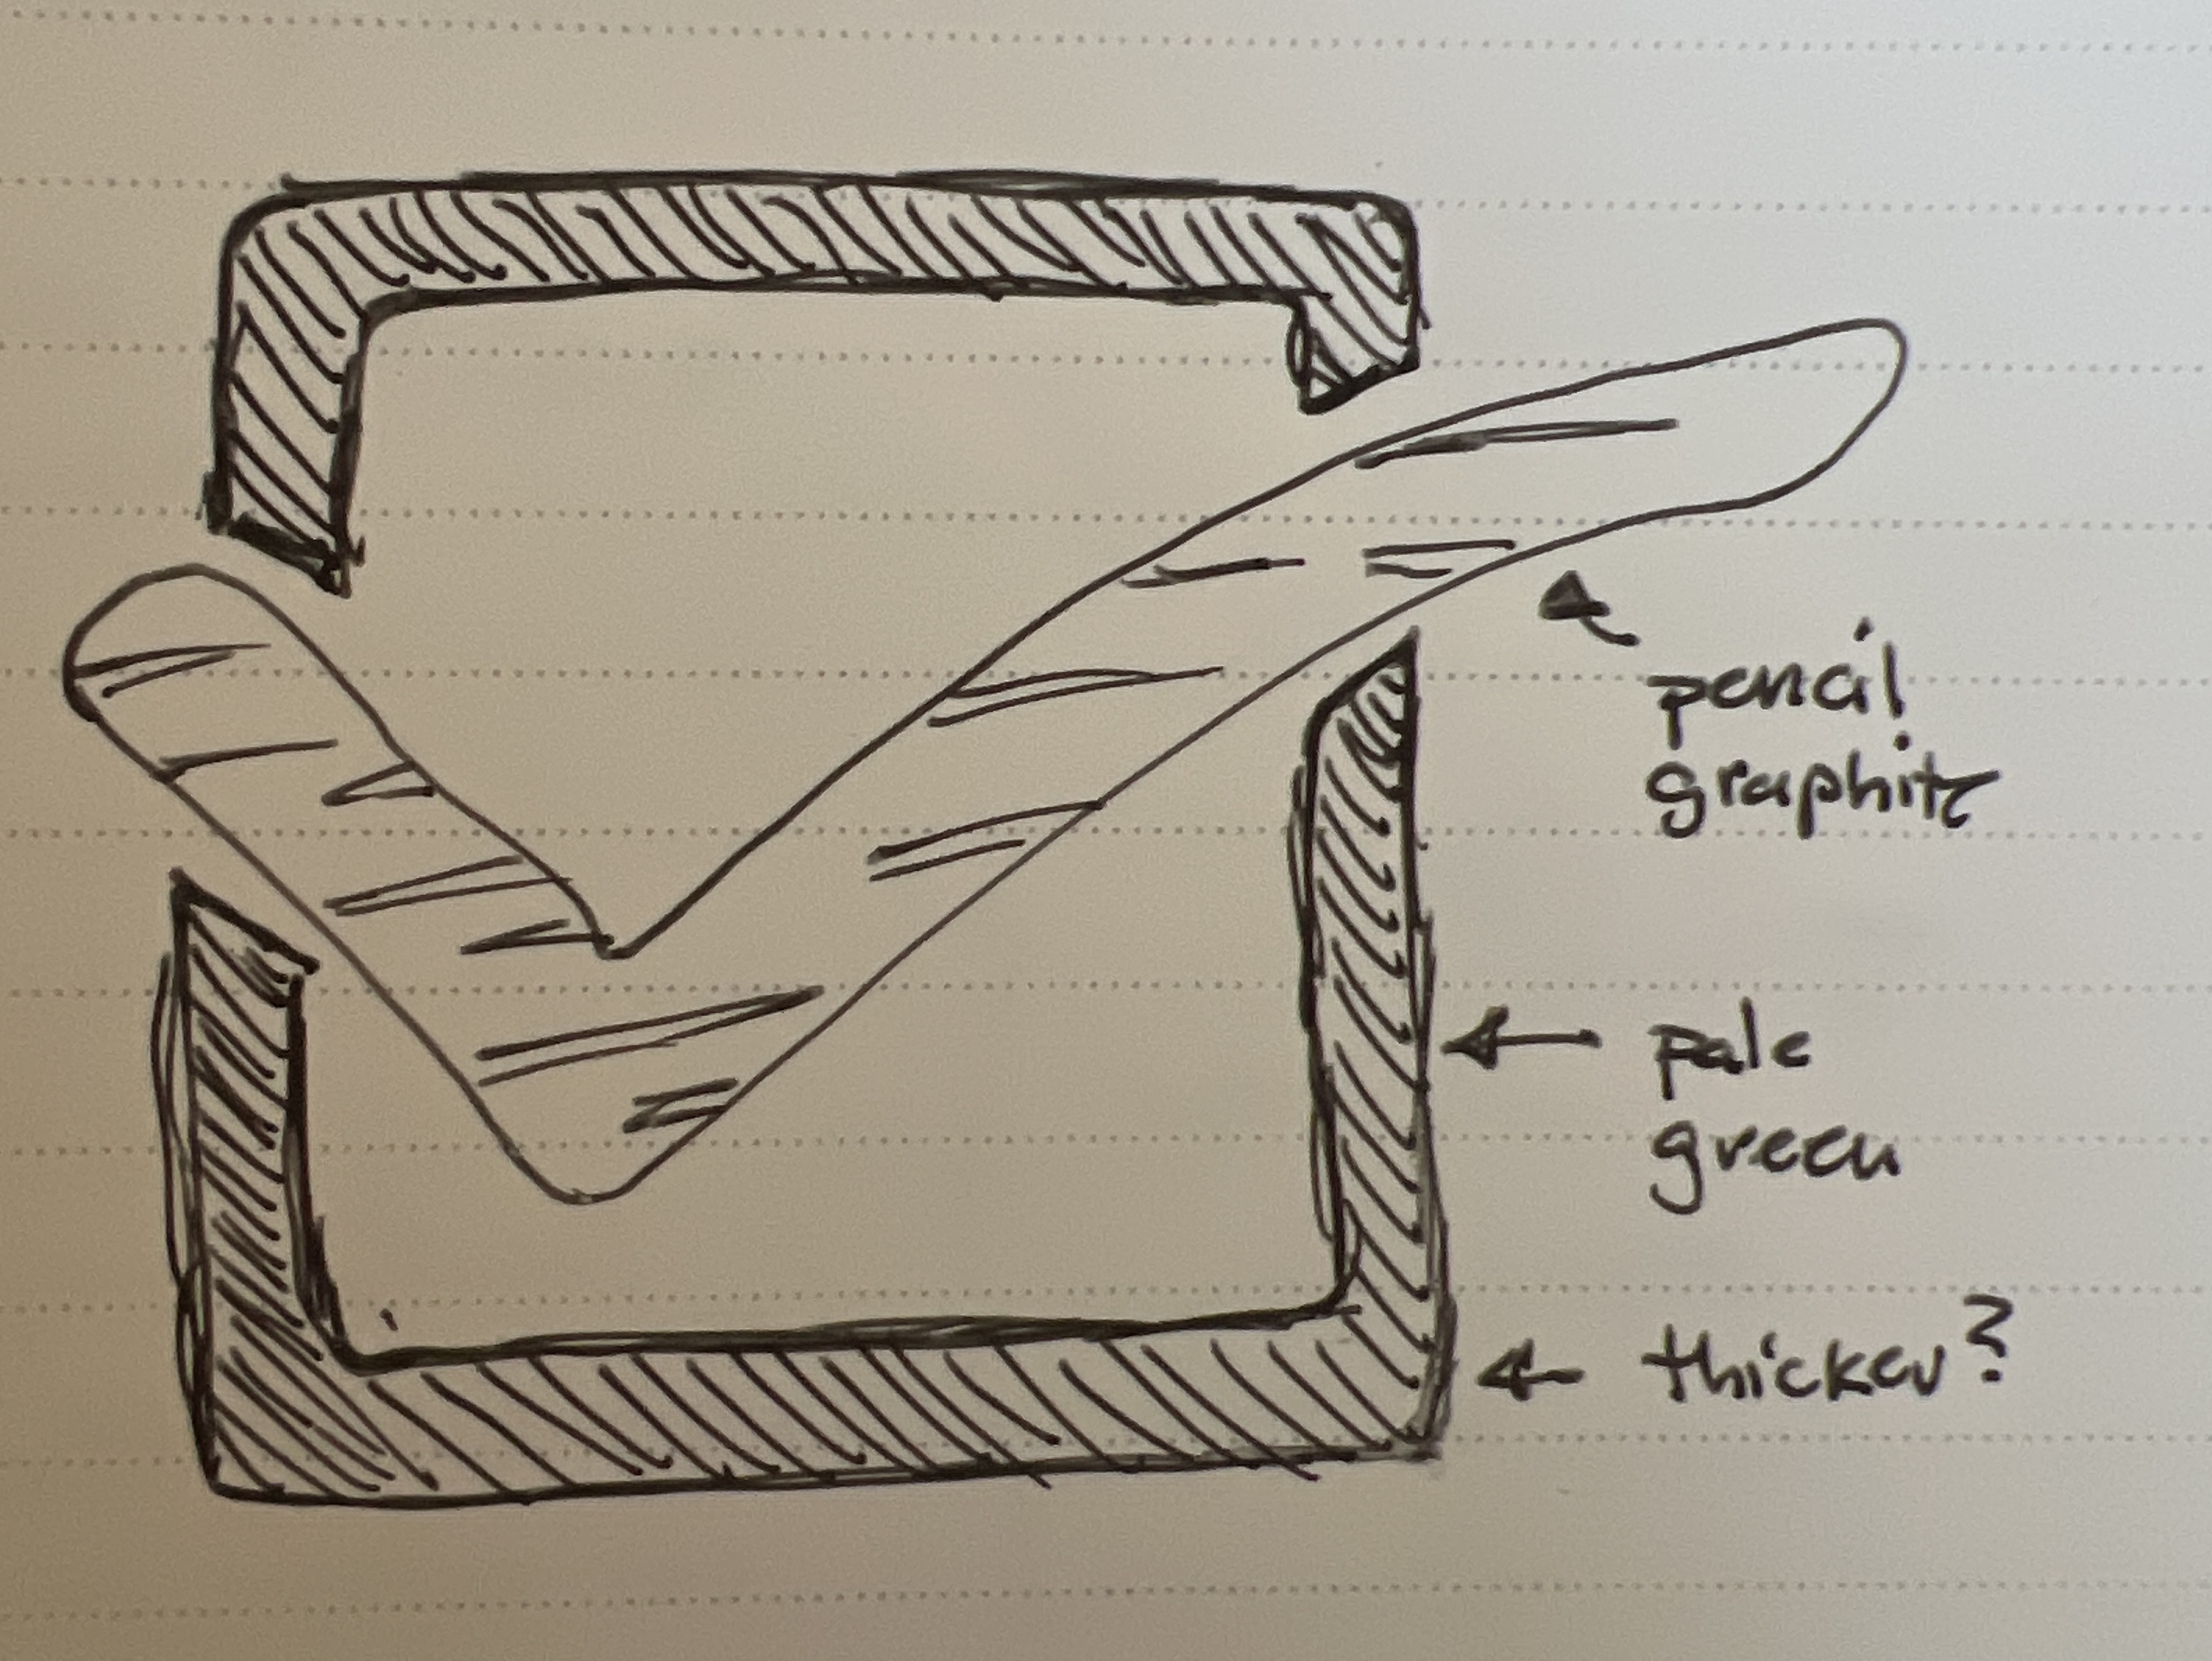 pencil
graphite
pale
green
thicker?